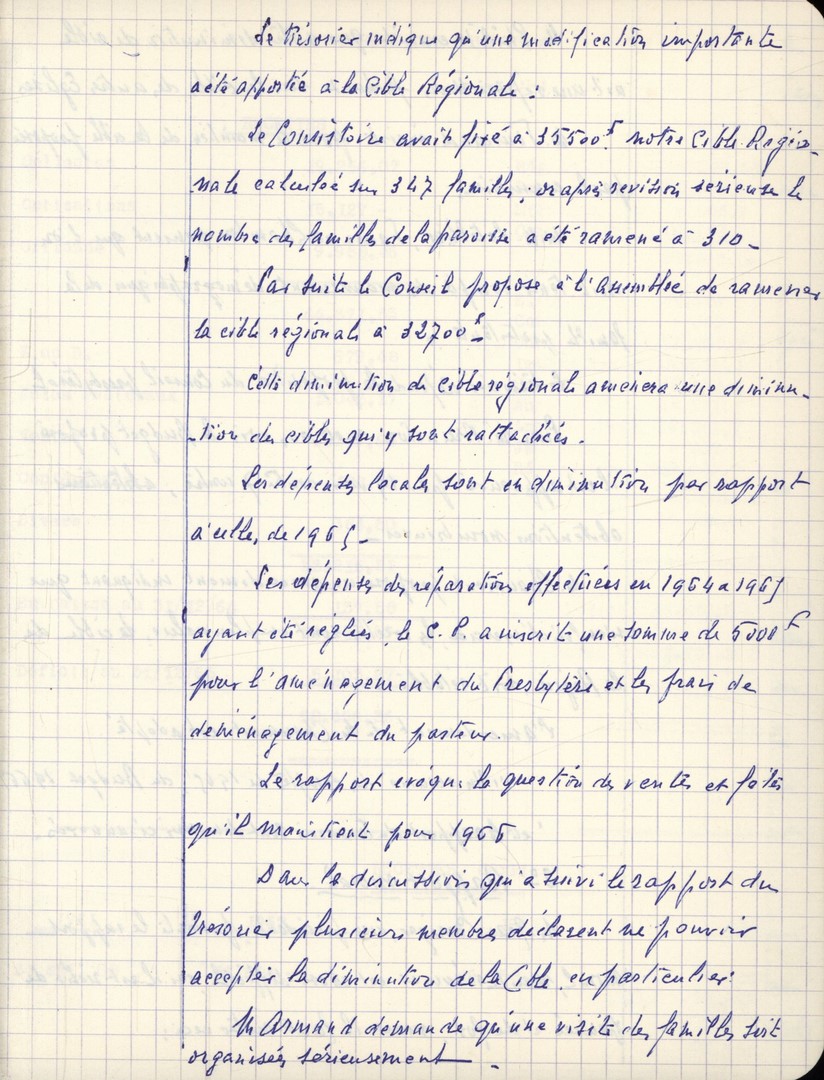 Le trésorier indique qu'une modification importante
a été apportée à la Cible Régionale :
Le Consistoire avait fixé à 35500F. notre Cible Régio-
nale calculée sur 347 familles ; or après revision sérieuse le
nombre des familles de la paroisse a été ramené à 310 -
Par suite le Conseil propose à l'assemblée de ramener
la cible régionale à 32700F -
Cette diminution de cible régionale amènera une diminu-
-tion des cibles qui y sont rattachées.
Les dépenses locales sont en diminution par rapport
à celles de 1965 -
Les dépenses des réparations effectuées en 1964 à 1965
ayant été réglées, le C. P. a inscrit une somme de 5000 F
pour l'aménagement du Presbytère et les frais de
déménagement du pasteur.
Le rapport évoque la question des ventes et fêtes
qu'il maintient pour 1966
Dans la discussion qui a suivi le rapport du
trésorier plusieurs membres déclarent ne pouvoir
accepter la diminution de la Cible, en particulier:
M. Armand demande qu'une visite des familles soit
organisée sérieusement -